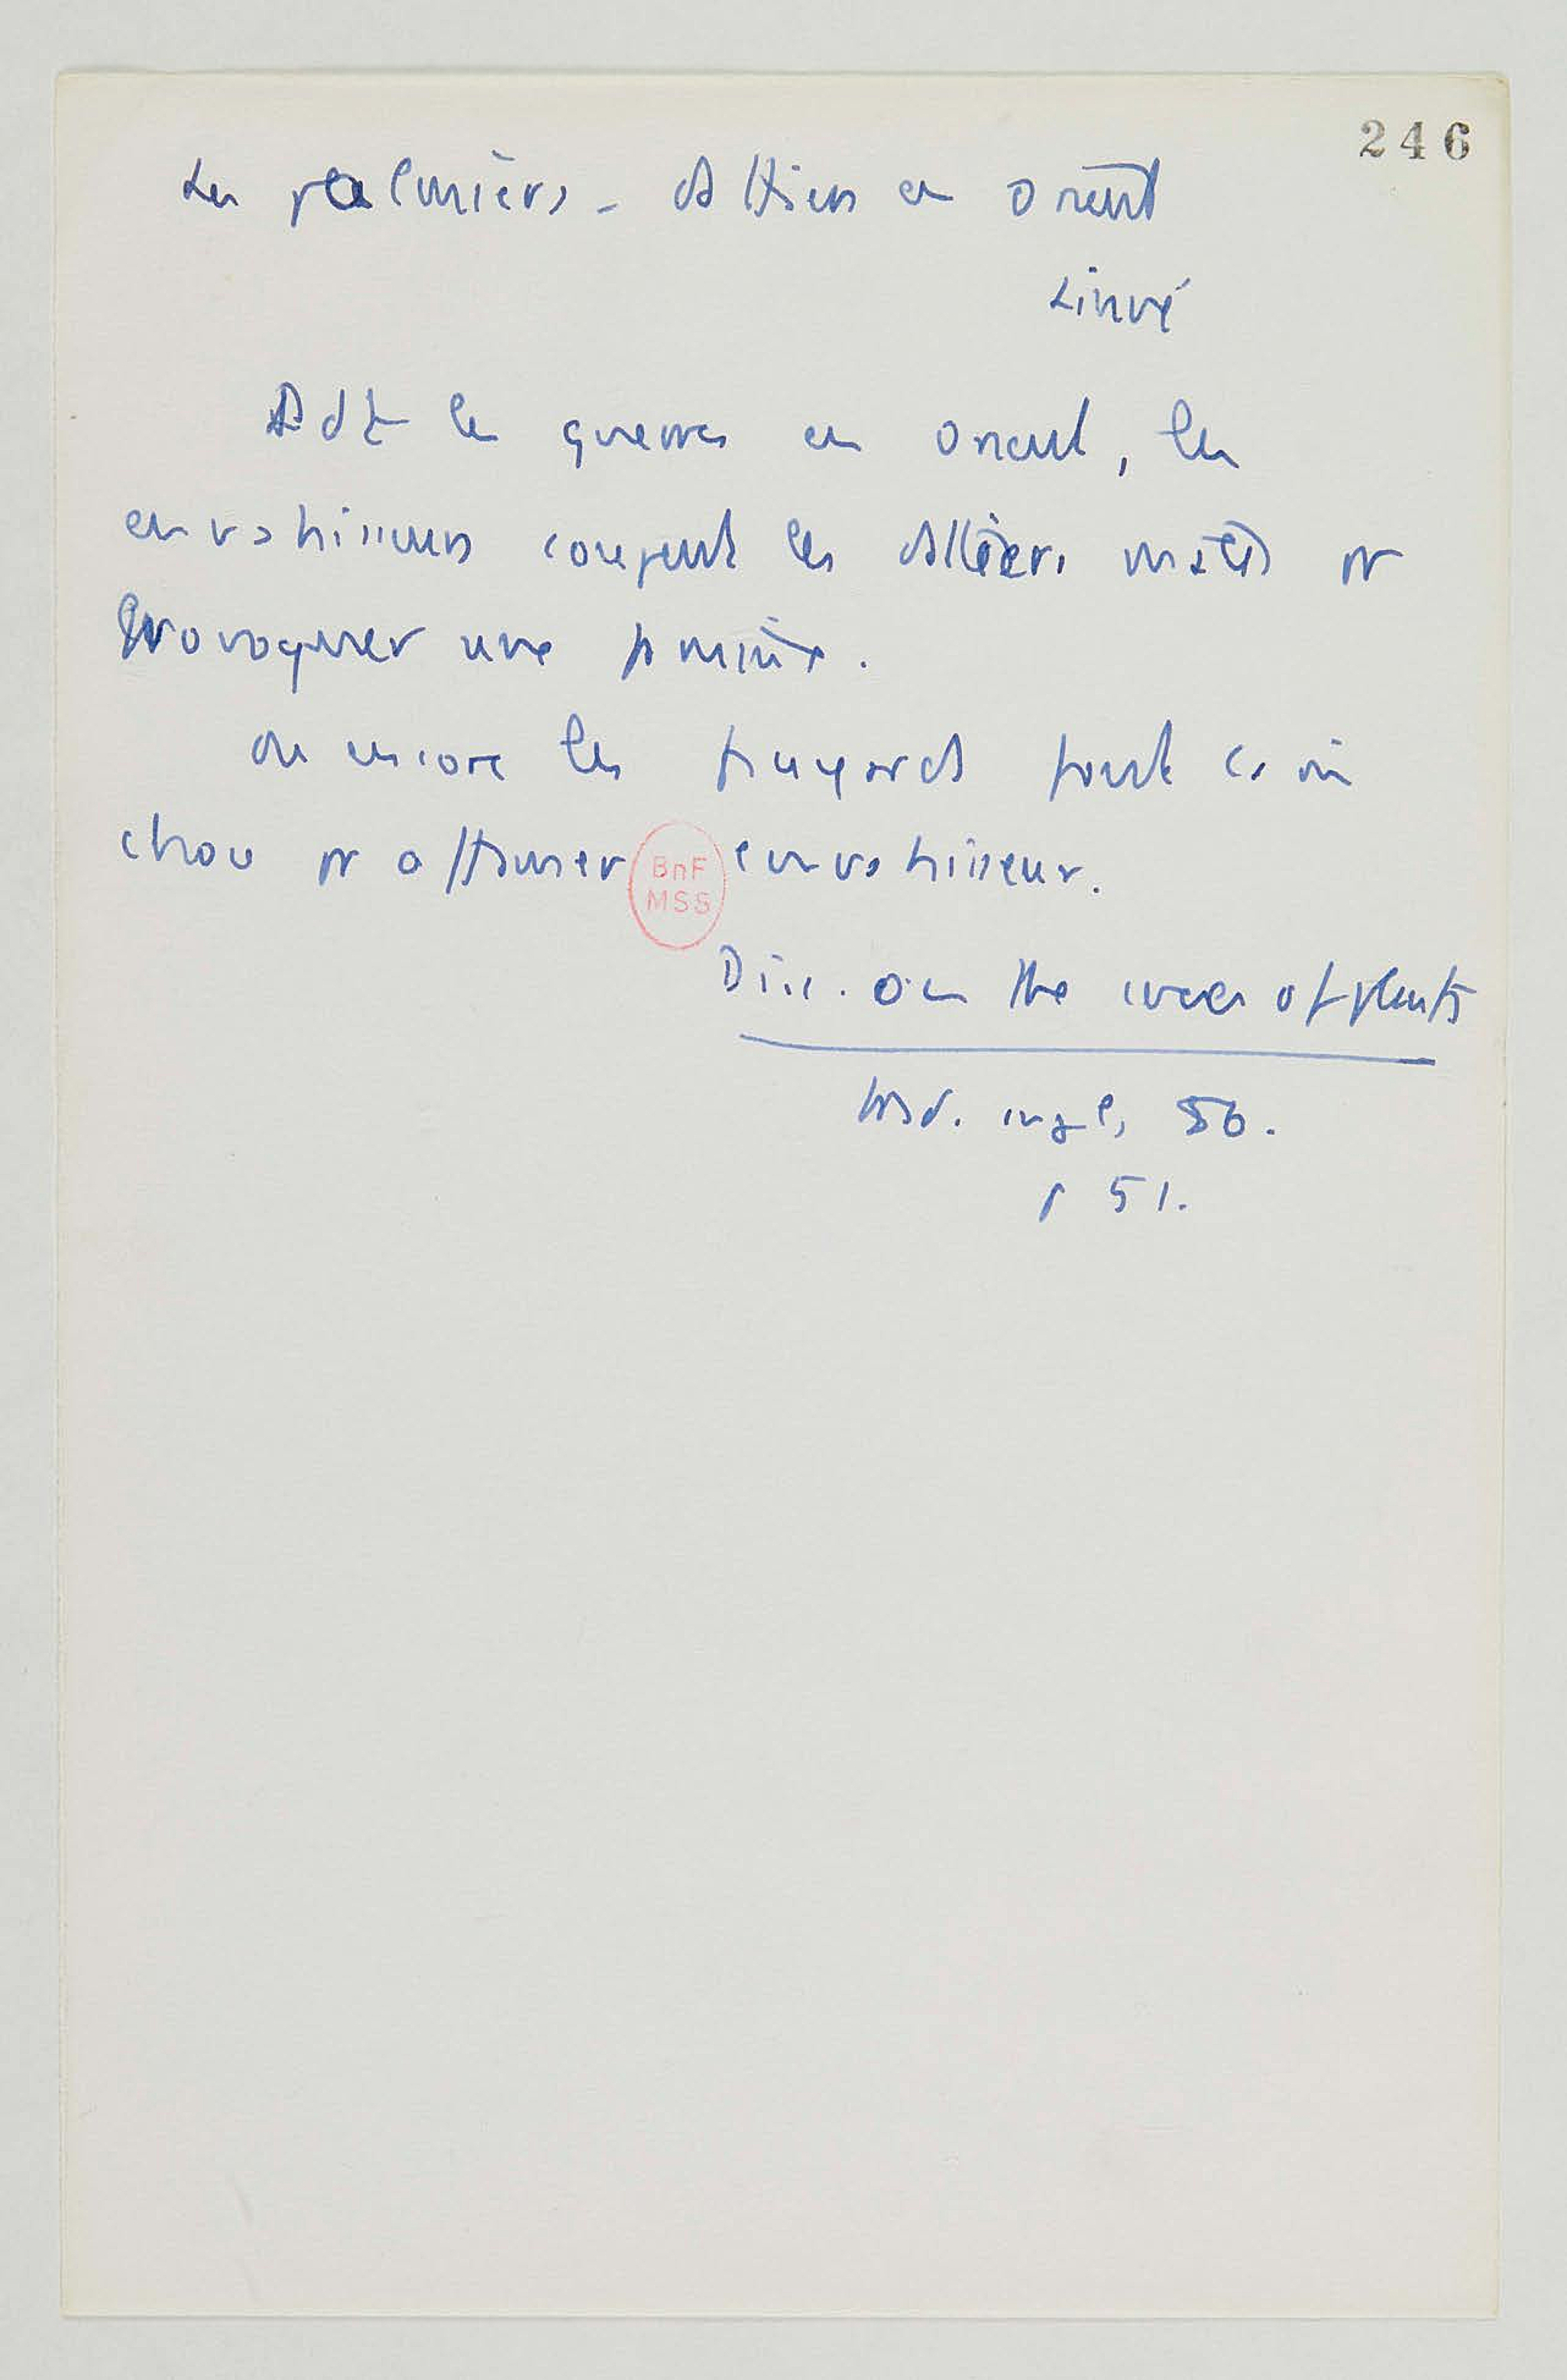 246
Les palmiers-dattiers en orient
Linné
Pdt les guerres en orient, les
envahisseurs coupent les dattiers mâles pr
provoquer une famine.
Ou encore les fuyards font la mê
chose pr affamer envahisseur.
BnF
MSS
Diss. on the sexes of plants
trad. angl, 86.
p 51.